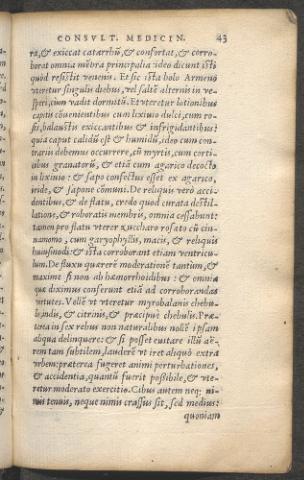 CONSVLT. MEDICIN. 43
ra, & exiccat catarrhũ, & confortat, & corro-
borat omnia mẽbra principalia ideo dicunt istā
quòd resistit venenis. Et sic ista bolo Armeno
vteretur singulis diebus, vel saltẽ alternis in ve-
speri, cùm vadit dormitũ. Et vteretur lotionibus
capitis cõuenientibus cum lixiuio dulci, cum ro-
sis, balaustis exiccantibus & infrigidantibus:
quia caput calidũ est & humidũ, ideo cum con-
trariis debemus occurrere, cũ myrtis, cum corti-
cibus granatorũ, & etiã cum agarico decocto
in lixiuio: & sapo confectus esset ex agarico,
iride, & sapone cõmuni. De reliquis verò acci-
dentibus, & de flatu, credo quod curata destil-
latione, & roboratis membris, omnia cessabunt:
tamen pro flatu vterer zuccharo rosato cũ cin-
namomo, cum garyophyllis, macis, & reliquis
huiusmodi: & ista corroborant etiam ventricu-
lum. De fluxu quærerẽ moderationẽ tantùm, &
maxime si non ab hæmorrhoidibus: & omnia
quæ diximus conferunt etiã ad corroborandas
virtutes. Vellẽ vt vteretur myrobalanis chebu-
lis, indis, & citrinis, & præcipuè chebulis. Præ-
terea in sex rebus non naturalibus nollẽ ipsam
aliqua delinquere: & si posset euitare illũ aë-
rem tam subtilem, laudarẽ vt iret aliquò extra
vrbem: præterea fugeret animi perturbationes,
& accidentia, quantũ fuerit possibile, & vte-
retur moderato exercitio. Cibus autem neq; ni-
mis tenuis, neque nimis crassus sit, sed medius:
quoniam